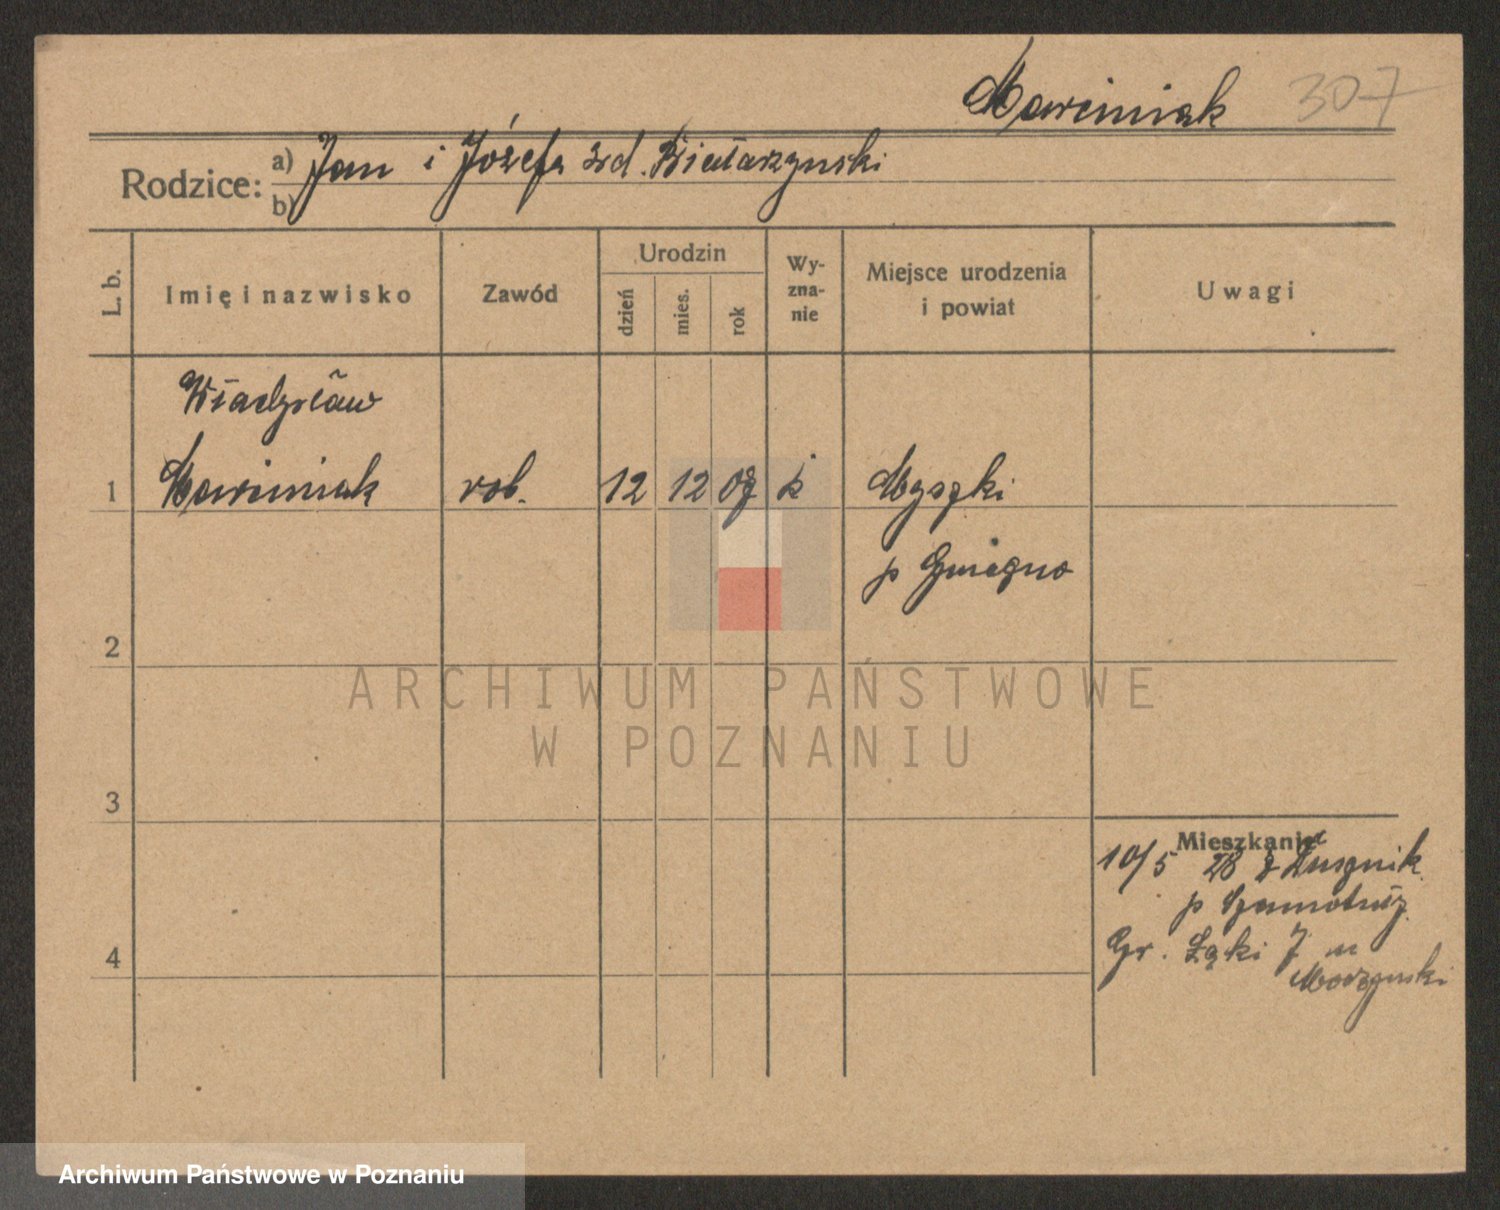 Marciniak 307
Rodzice: a) Jan i Józefa zd.
b)
L. b.
Imię i nazwisko
Zawód
Urodzin
dzień
mies.
rok
Wy-
zna-
nie
Miejsce urodzenia
i powiat
Uwagi
Władysław
1 Marciniak rob. 12 12 k Myszki
p Gniezno
2
ARCHIWUM PAŃSTWOWE
W POZNANIU
3
Mieszkanie
10/5 28 z Dusznik
p Szamotuły
4
Gr. Łąki 7 u
Archiwum Państwowe w Poznaniu